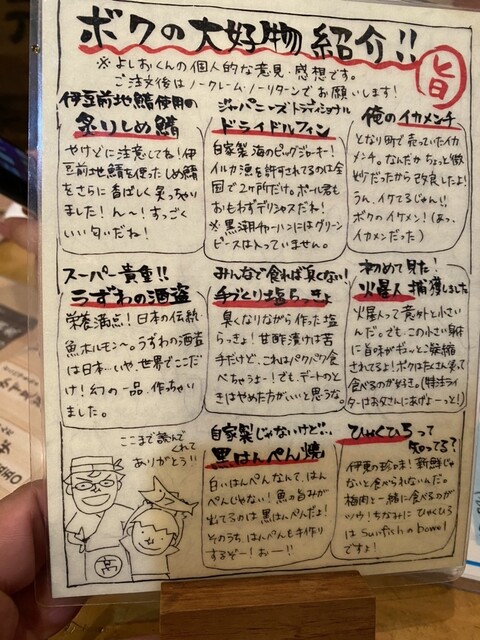 ボクの大好物紹介!!
旨
※よしおくんの個人的な意見・感想です。
ご注文後はノークレーム・ノーリターンでお願いします!
伊豆前地鯖使用の
炙りしめ鯖
やけどに注意してね!伊
豆前地鯖を使ったしめ鯖
をさらに香ばしく炙っちゃい
ました!ん〜!すっごく
いい匂いだね!
ジャパニーズトラディショナル
ドライドルフィン
自家製 海のビッグジョーキー!
イルカ漁を許されてるのは全
国で2ヶ所だけ。ポール君も
おもわずデリシャスだね!
※黒潮チャーハンにはグリーン
ピースは入っていません。
俺のイカメンチ
となり町で売っていたイカ
メンチ。なんだかちょっと微
妙だったから改良したよ!
うん、イケてるじゃん!!
ボクのイケメン!(あっ、
イカメンだった)
スーパー貴重!!
うずわの酒盗
栄養満点!日本の伝統
魚ホルモン〜。うずわの酒盗
は日本…いや、世界でここだ
け!幻の一品、作っちゃい
ました。
みんなで食れば臭くない!
手づくり塩らっきょ
臭くなりながら作った塩
らっきょ!甘酢漬けは苦
手だけど、これはパクパク食
べちゃうよー!でも、デートのと
きはやめた方がいいと思うな。
初めて見た!
火星人 捕獲しました
火星人って意外と小さい
んだ。でも、この小さい身体
に旨味がギュッとご凝縮
されてるよ!ボクはたくさん釣って
食べるのが好き。(特注ライ
ターはお父さんにあげよーっと!)
ここまで読んで
くれて
ありがとう!!
高
自家製じゃないけど…
黒はんぺん焼
白いはんぺんなんて、はん
ぺんじゃない!魚の旨みが
出てるのは黒はんぺんだよ!
そのうち、はんぺんも手作り
するぞー!おー!!
ひゃくひろって
知ってる?
伊東の珍味!新鮮じゃ
ないと食べられないんだ。
梅肉と一緒に食べるのが
ツウ!ちなみに ひゃくひろ
は Sunfishのbowel
ですよ!